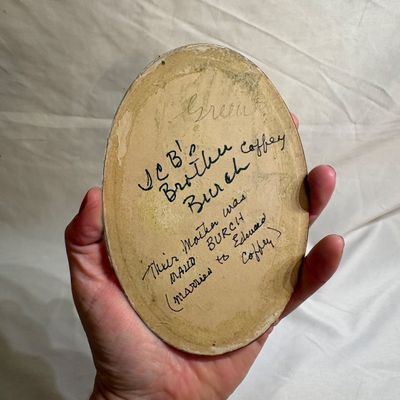 Green
JCB's
Brother Coffey
Burch
Their Mother was
MAUD BURCH
(married to Edward
Coffey)